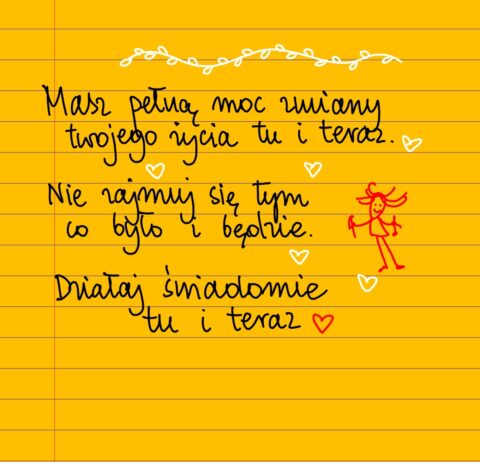 Masz pełną moc zmiany
twojego życia tu i teraz.
Nie zajmuj się tym
co było i będzie.
Działaj świadomie
tu i teraz